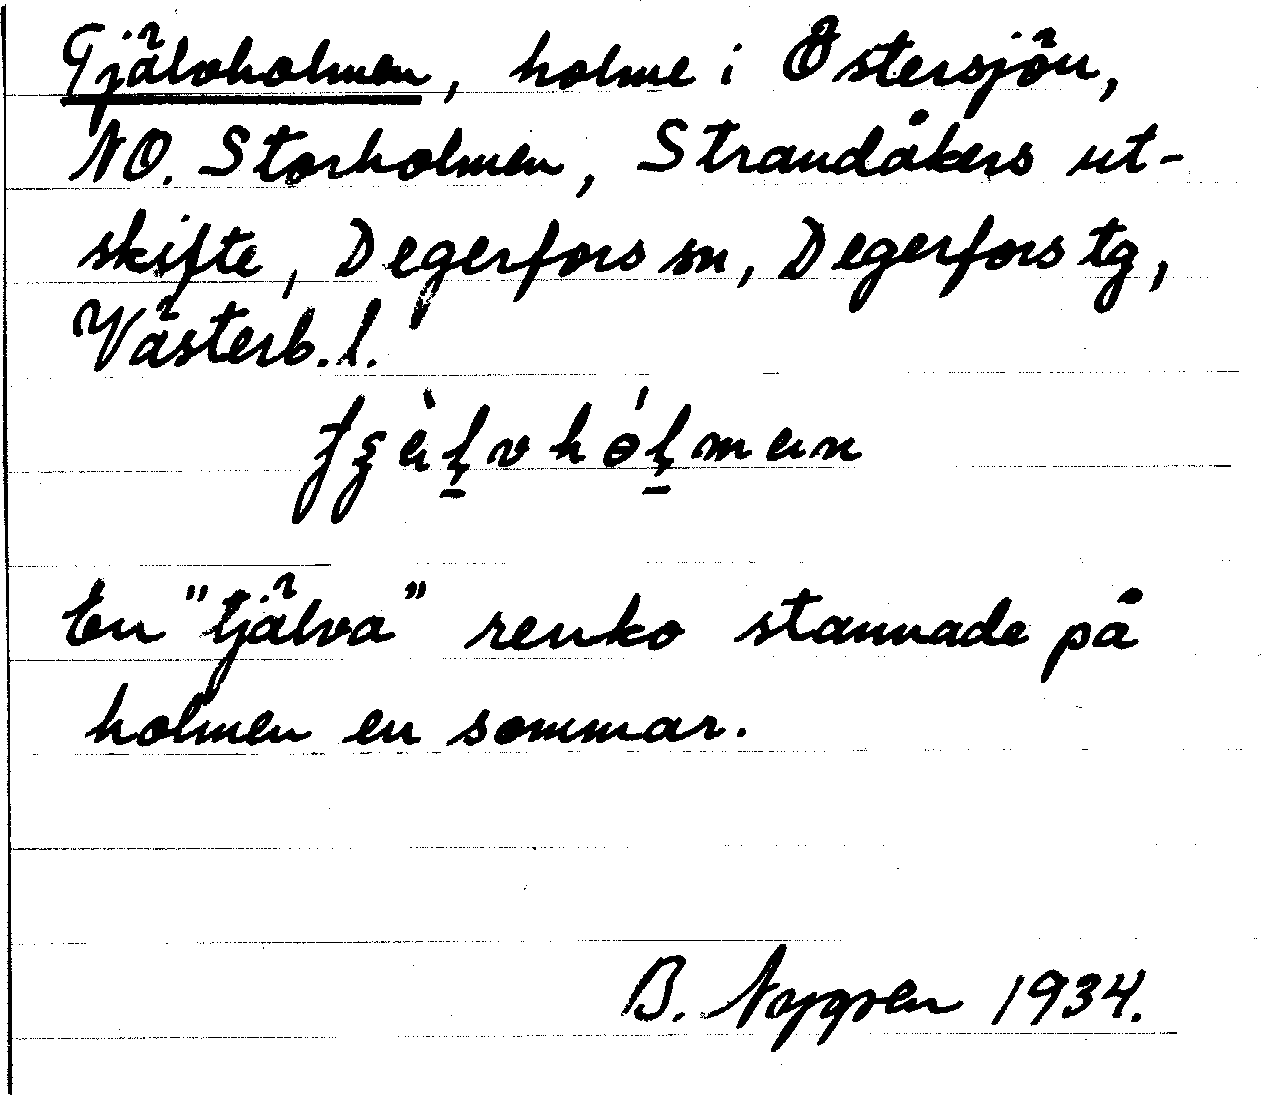 Tjälvholmen, holme i Östersjön,
NO. Storholmen, Strandåkers ut-
skifte, Degerfors sn, Degerfors tg,
Västerb. l.
En "tjälva" renko stannade på
holmen en sommar.
B. Nygren 1934.